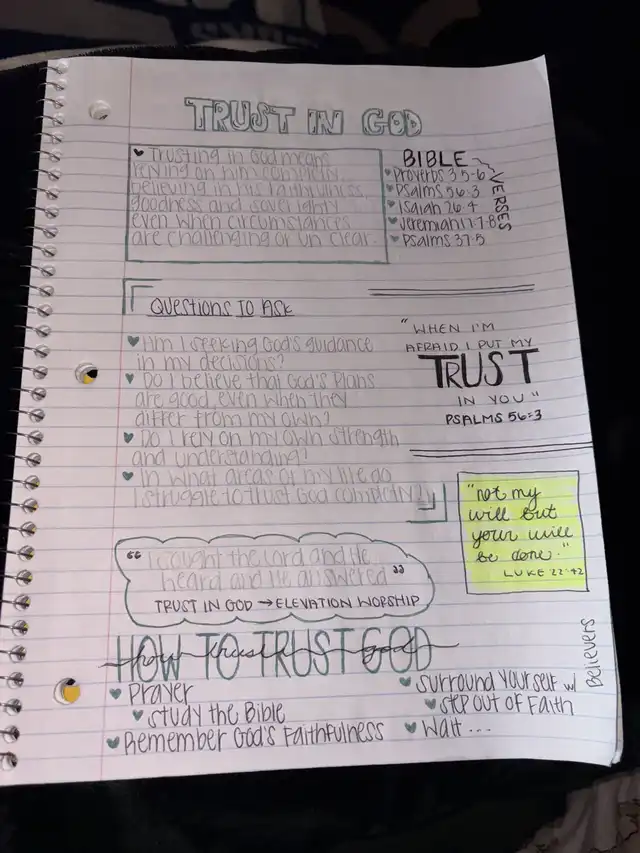 TRUST IN GOD
Trusting in God means
relying on him completly,
believing in his faithfulness,
goodness and soverighty
even when circumstances
are challenging or un clear.
BIBLE
VERSES
Proverbs 3:5-6
Psalms 56:3
Isaiah 26:4
Jeremiah 17:7-8
Psalms 37:5
QUESTIONS TO ASK
Am I seeking God's guidance
in my decisions?
Do I believe that God's Plans
are good, even when they
differ from my own?
Do I rely on my own strength
and understanding?
In what areas of my life do
I struggle to trust God completly?
"WHEN I'M
AFRAID I PUT MY
TRUST
IN YOU"
PSALMS 56:3
"not my
will but
your will
be done."
LUKE 22:42
"I caught the Lord and He
heard and He answered"
TRUST IN GOD → ELEVATION WORSHIP
HOW TO TRUST GOD
how to trust God
Prayer
Study the Bible
Remember God's Faithfulness
Surround Yourself w/
Believers
Step out of Faith
Wait ...